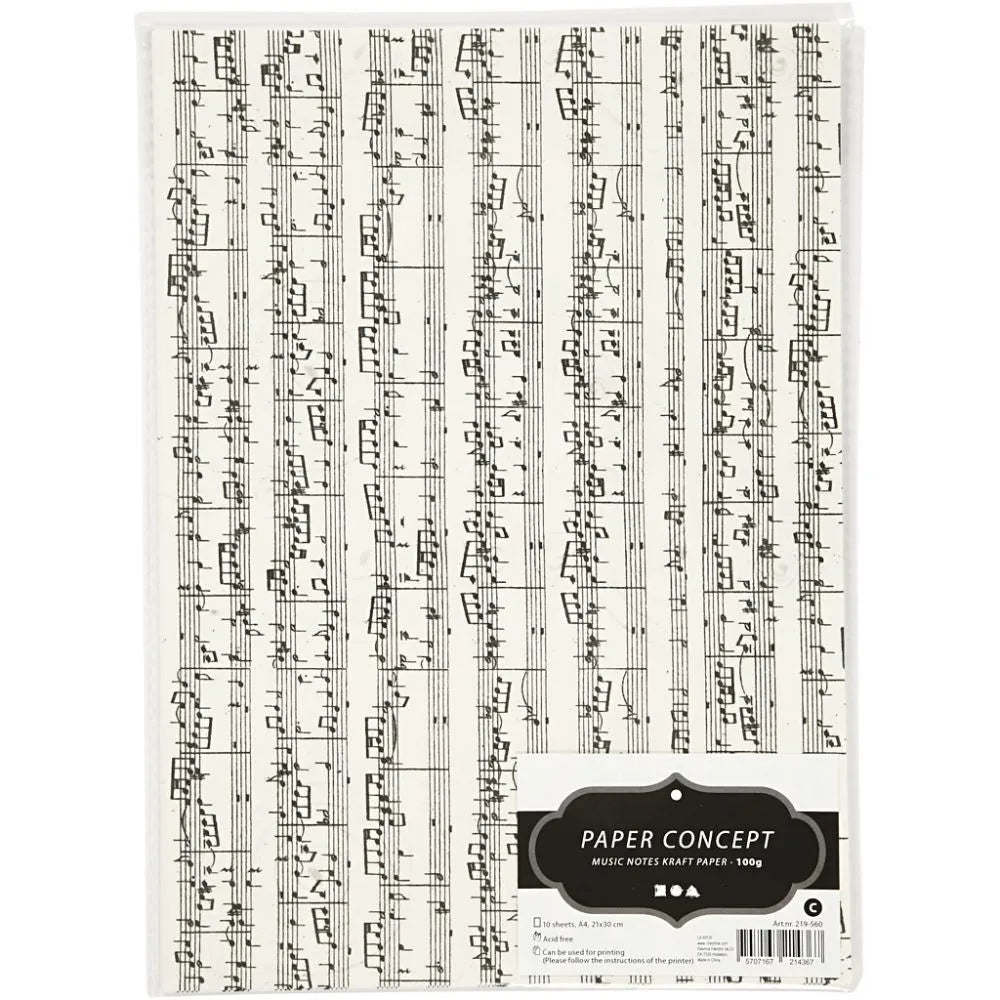 PAPER CONCEPT
MUSIC NOTES KRAFT PAPER - 100g
C
10 sheets, A4, 21x30 cm
Art.nr. 219-560
Acid free
Can be used for printing
(Please follow the instructions of the printer)
5707167 214367